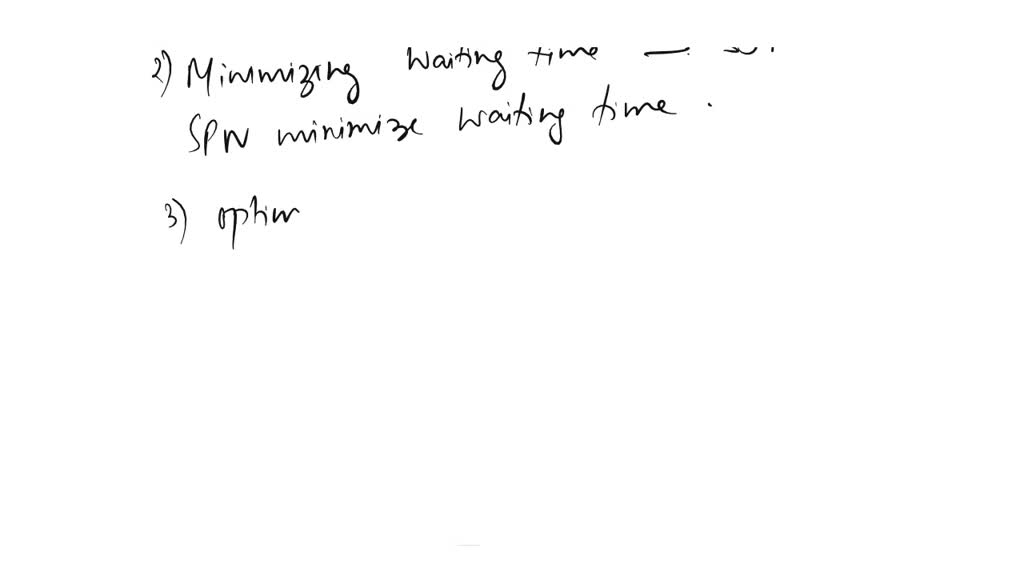 2) Minimizing waiting time —
SPN minimize waiting time.
3) optim